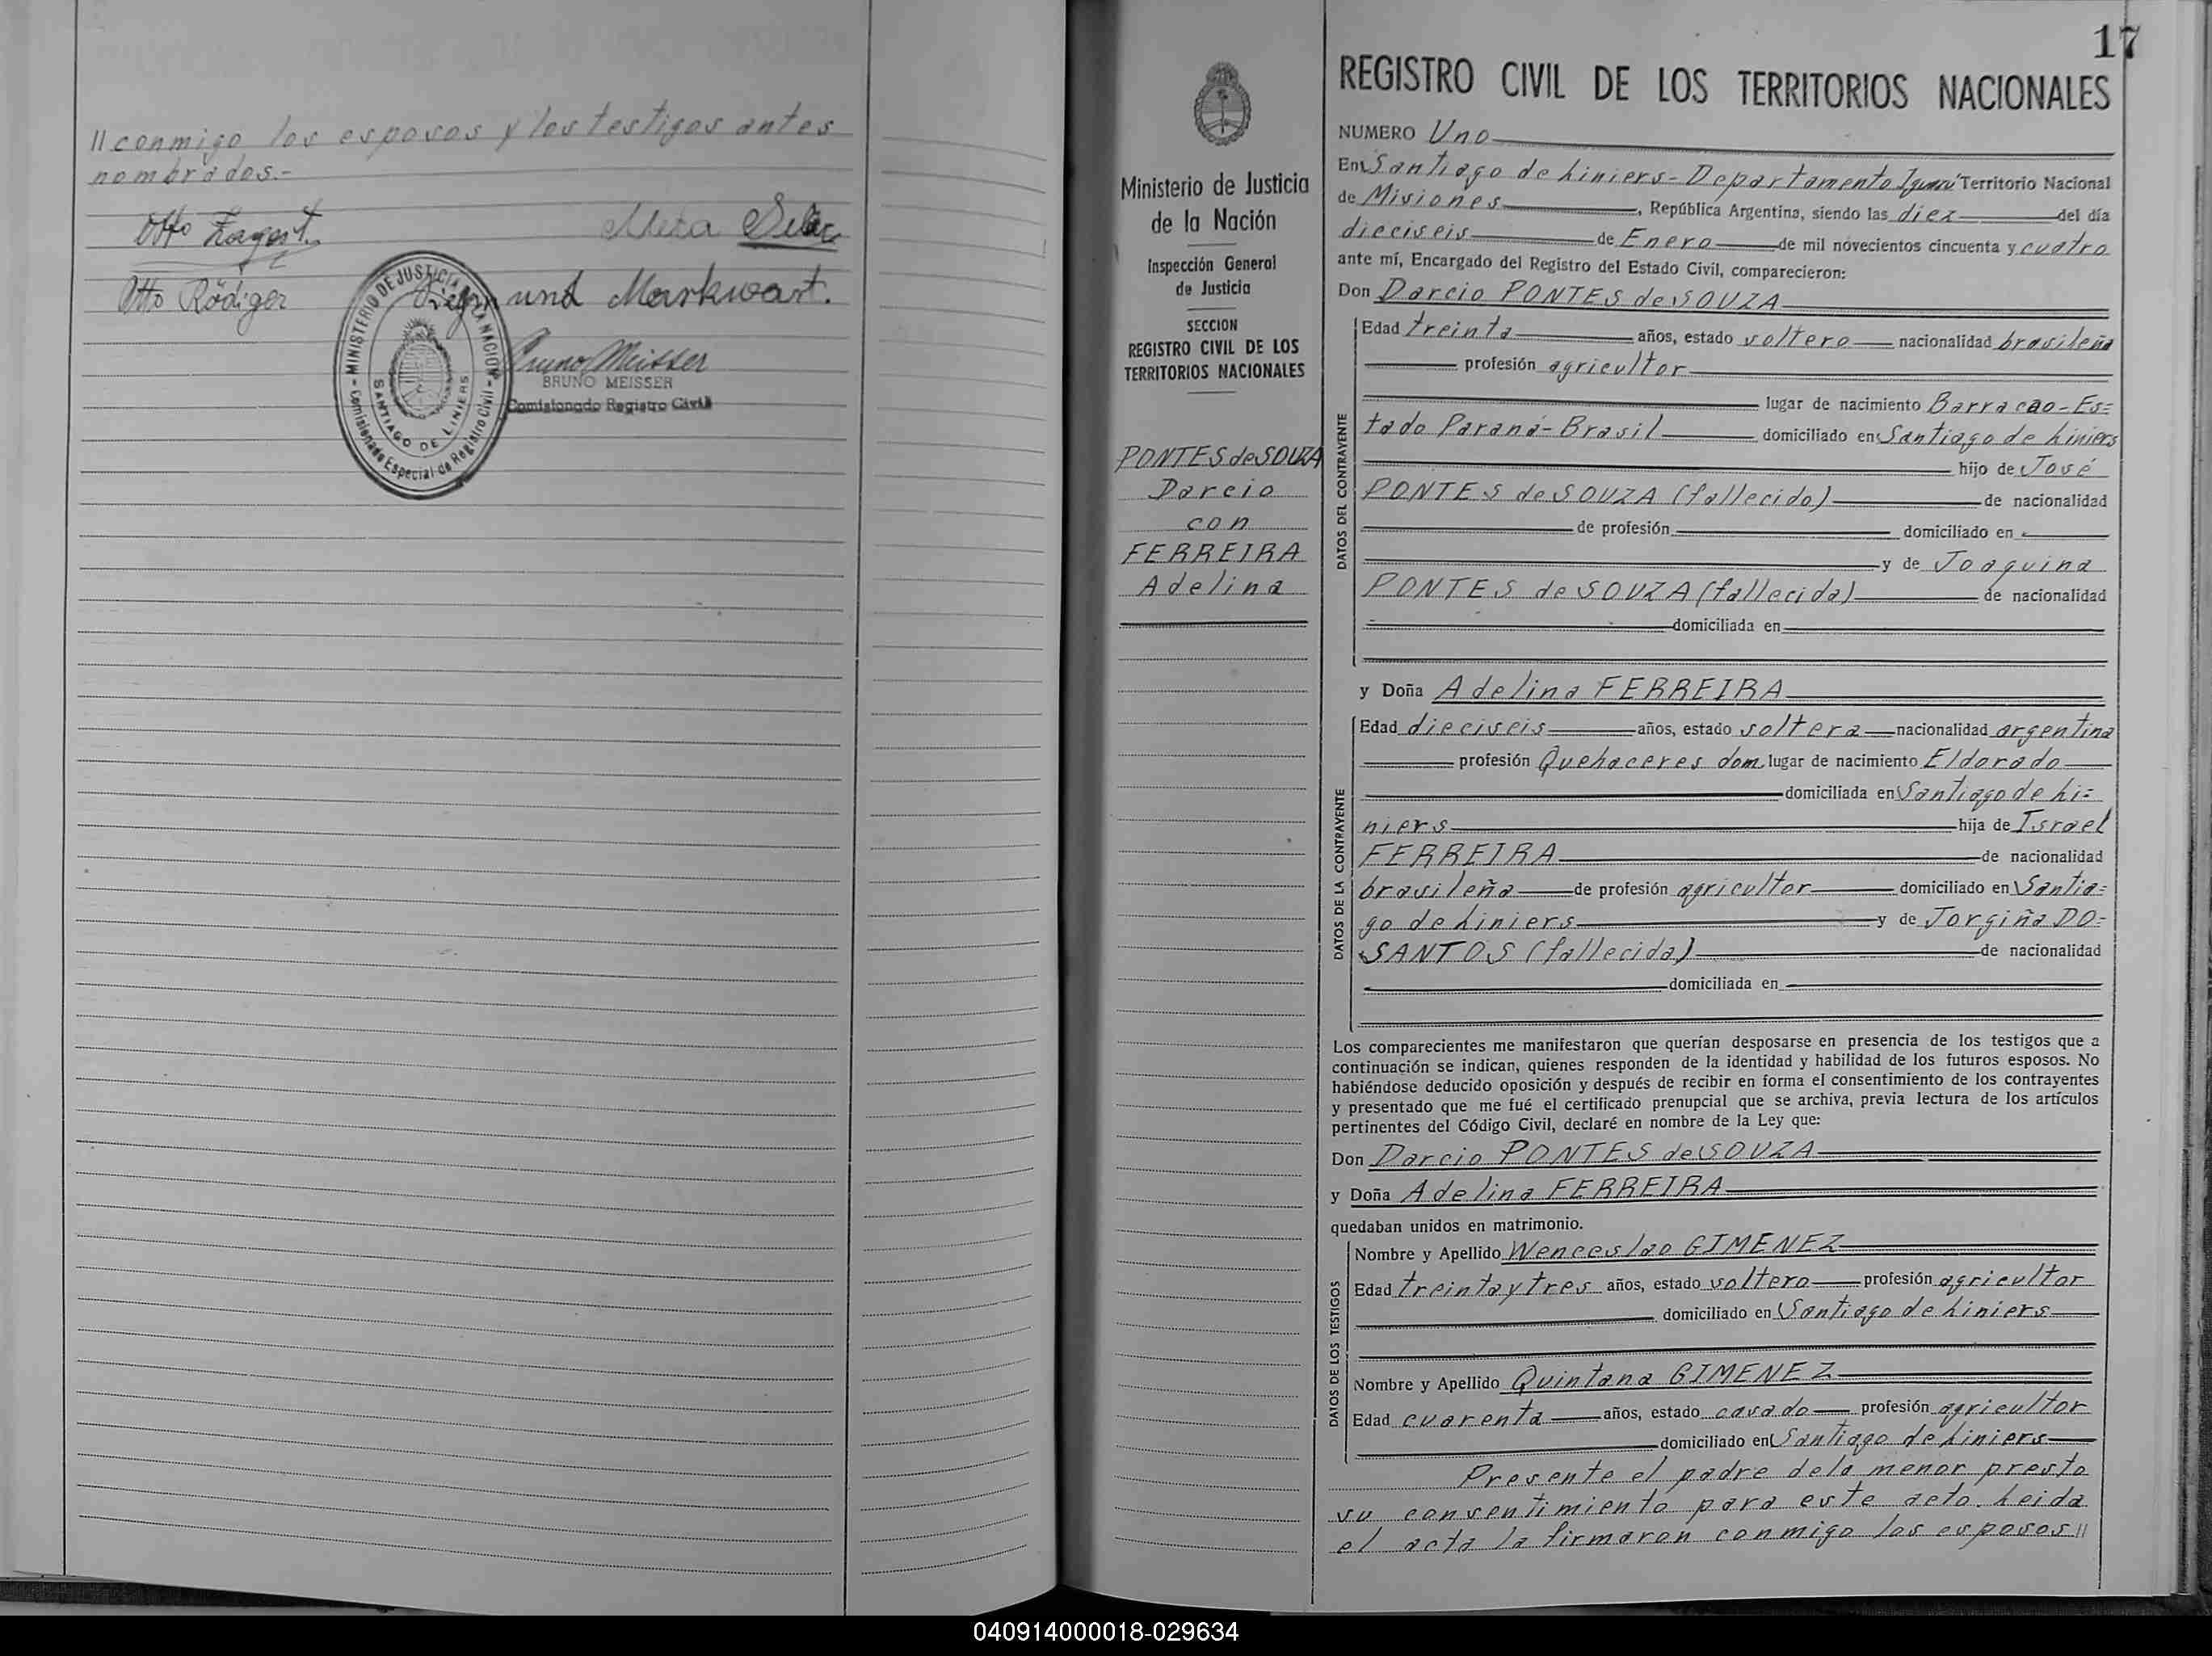 // conmigo los esposos y los testigos antes
nombrados.-
Otto
Meta
Otto Rödiger
und Markwart.
MINISTERIO DE JUSTICIA DE LA NACION
SANTIAGO DE LINIERS
Comisionado Especial de Registro Civil
Bruno Meisser
BRUNO MEISSER
Comisionado Registro Civil
17
Ministerio de Justicia
de la Nación
Inspección General
de Justicia
SECCION
REGISTRO CIVIL DE LOS
TERRITORIOS NACIONALES
PONTES de SOUZA
Darcio
con
FERREIRA
Adelina
REGISTRO CIVIL DE LOS TERRITORIOS NACIONALES
NUMERO Uno
En Santiago de Liniers - Departamento Iguazú Territorio Nacional
de Misiones, República Argentina, siendo las diez del día
dieciseis de Enero de mil novecientos cincuenta y cuatro
ante mí, Encargado del Registro del Estado Civil, comparecieron:
Don Darcio PONTES de SOUZA
DATOS DEL CONTRAYENTE
Edad treinta años, estado soltero nacionalidad brasileña
profesión agricultor
lugar de nacimiento Barracao - Es=
tado Paraná - Brasil domiciliado en Santiago de Liniers
hijo de José
PONTES de SOUZA (fallecido) de nacionalidad
de profesión domiciliado en
y de Joaquina
PONTES de SOUZA (fallecida) de nacionalidad
domiciliada en
y Doña Adelina FERREIRA
DATOS DE LA CONTRAYENTE
Edad dieciseis años, estado soltera nacionalidad argentina
profesión Quehaceres dom. lugar de nacimiento Eldorado
domiciliada en Santiago de Li=
niers hija de Israel
FERREIRA de nacionalidad
brasileña de profesión agricultor domiciliado en Santia=
go de Liniers y de Jorgiña DO=
SANTOS (fallecida) de nacionalidad
domiciliada en
Los comparecientes me manifestaron que querían desposarse en presencia de los testigos que a
continuación se indican, quienes responden de la identidad y habilidad de los futuros esposos. No
habiéndose deducido oposición y después de recibir en forma el consentimiento de los contrayentes
y presentado que me fué el certificado prenupcial que se archiva, previa lectura de los artículos
pertinentes del Código Civil, declaré en nombre de la Ley que:
Don Darcio PONTES de SOUZA
y Doña Adelina FERREIRA
quedaban unidos en matrimonio.
DATOS DE LOS TESTIGOS
Nombre y Apellido Wenceslao GIMENEZ
Edad treinta y tres años, estado soltero profesión agricultor
domiciliado en Santiago de Liniers
Nombre y Apellido Quintana GIMENEZ
Edad cuarenta años, estado casado profesión agricultor
domiciliado en Santiago de Liniers
Presente el padre de la menor presto
su consentimiento para este acto. Leida
el acta la firmaron conmigo los esposos //
040914000018-029634